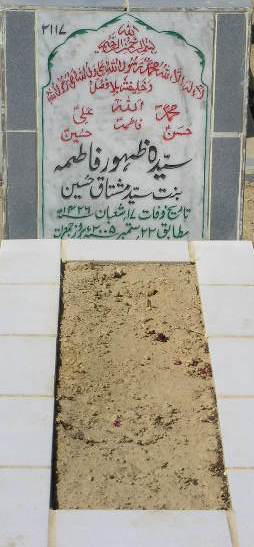 ۳۱۱۷
یا اللہ
بسم اللہ الرحمن الرحیم
لا الہ الا اللہ محمد رسول اللہ علی ولی اللہ وصی رسول اللہ
وخلیفتہ بلا فصل
محمدؐ اللہ علیؑ
حسنؑ فاطمہؑ حسینؑ
سیدہ ظہور فاطمہ
بنت سید مشتاق حسین
تاریخ وفات ۱۷ شعبان ۱۴۲۶ھ
مطابق ۲۲ ستمبر ۲۰۰۵ بروز جمعرات